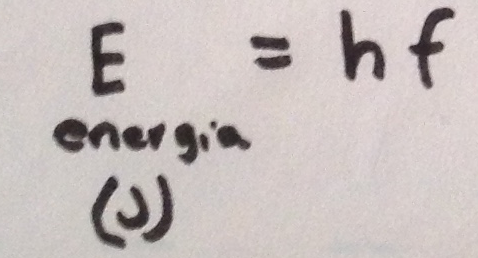 E = hf
energia
(J)